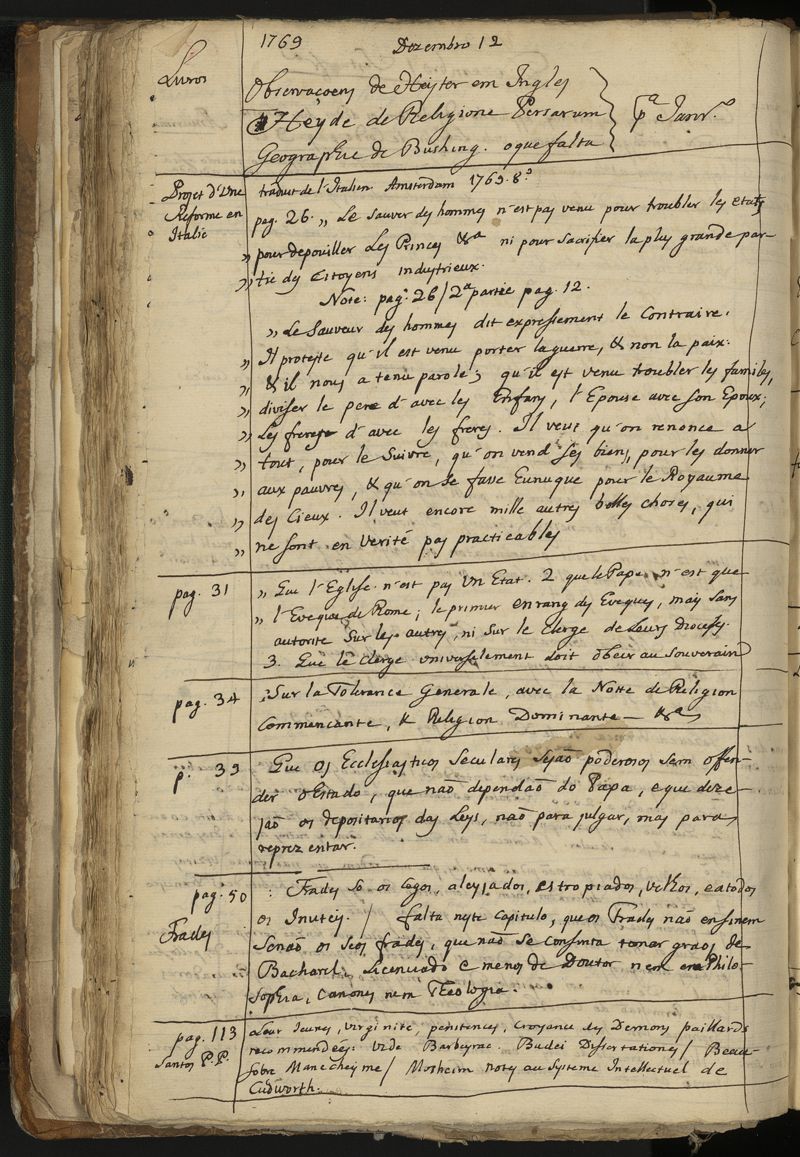 1769 Dezembro 12
Livros
Observaçoens de Heister em Ingles
Heyde de Religione Persarum pª Janrº
Geographie de Busching. o que falta
Projet d'Une Reforme en Italie
traduit de l'Italien Amsterdam 1769. 8º
pag. 26. „ Le Sauver des hommes n'est pas venu pour troubler les etats
„ pour depouiller Les Princes &ª ni pour Sacrifier la plus grande par-
„ tie des Citoyens industrieux.
Note: pag. 26/2ª partie pag. 12.
„ Le Sauveur des hommes dit expressement le Contraire.
„ Il proteste qu'il est venu porter la guerre, & non la paix.
„ & il nous a tenu parole; qu'il est venu troubler les familes,
„ diviser le pere d'avec les Enfans, l'Epouse avec son Epoux;
„ Les freres d'avec les freres. Il veut qu'on renonce a
„ tout, pour le Suivre, qu'on vend ses biens, pour les donner
„ aux pauvres, & qu'on se fasse Eunuque pour le Royaume
„ des Cieux. Il veut encore mille autres belles choses, qui
„ ne sont en verité pas practicables
pag. 31 „ Que l'Eglise n'est pas Un Etat. 2 que le Pape n'est que
„ l'Eveque de Rome; le primier en rang des Eveques, mais sans
autorité Sur les autres, ni Sur le Clerge de Leurs Dioceses.
3. Que le Clerge universelement doit obeir au Souverain
pag. 34 : Sur la Tolerance Generale, avec la Notte de Religion
Commencante, & Religion Dominante — &ª
p. 39 Que os Ecclesiasticos Seculares sejaõ poderosos sem offen-
der o Estado, que naõ dependaõ do Papa, e que deze-
jaõ os depositarios das Leys, naõ para julgar, mas para
reprezentar.
pag. 50 : Frades so os Cegos, aleyjados, estropiados, velhos, e a todos
os Inuteis. / falta neste Capitulo, que os Frades naõ ensinem
Frades
Senaõ os seos frades, que naõ se Consinta tomar graos de
Bacharel, Licenciado e menos de Doutor nem em Philo-
sophia, Canones nem Theologia.
pag. 113 Leur Jeunes, virginité, penitences, Croyance des Demons paillards
Santos P.P. recommendées: vide Barbeyrac. Budei Dissertationes / Beau-
sobre Manecheyme / Mosheim notes au Systeme Intellectuel de
Cudworth.